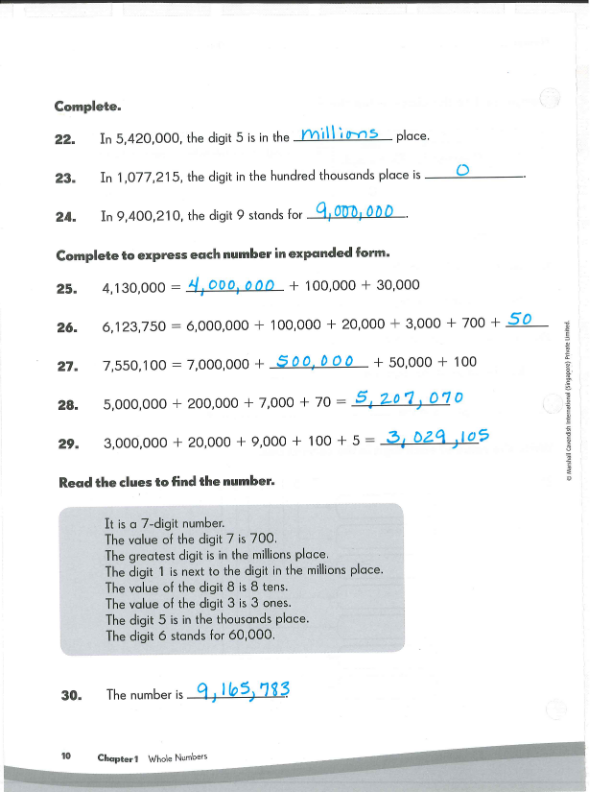 Complete.
22. In 5,420,000, the digit 5 is in the millions place.
23. In 1,077,215, the digit in the hundred thousands place is 0.
24. In 9,400,210, the digit 9 stands for 9,000,000.
Complete to express each number in expanded form.
25. 4,130,000 = 4,000,000 + 100,000 + 30,000
26. 6,123,750 = 6,000,000 + 100,000 + 20,000 + 3,000 + 700 + 50
27. 7,550,100 = 7,000,000 + 500,000 + 50,000 + 100
28. 5,000,000 + 200,000 + 7,000 + 70 = 5,207,070
29. 3,000,000 + 20,000 + 9,000 + 100 + 5 = 3,029,105
Read the clues to find the number.
It is a 7-digit number.
The value of the digit 7 is 700.
The greatest digit is in the millions place.
The digit 1 is next to the digit in the millions place.
The value of the digit 8 is 8 tens.
The value of the digit 3 is 3 ones.
The digit 5 is in the thousands place.
The digit 6 stands for 60,000.
30. The number is 9,165,783.
10 Chapter 1 Whole Numbers
© Marshall Cavendish International (Singapore) Private Limited.